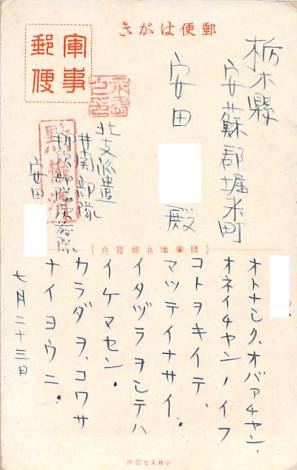 郵便はがき
軍事
郵便
栃木縣
安蘇郡堀米町
安田 殿
北支派遣
井関部隊
安田
オトナシク、オバアチャン、
オネイチャンノイフ
コトヲキイテ、
マッテイナサイ。
イタヅラヲシテハ
イケマセン。
カラダヲ、コワサ
ナイヨウニ。
七月二十三日